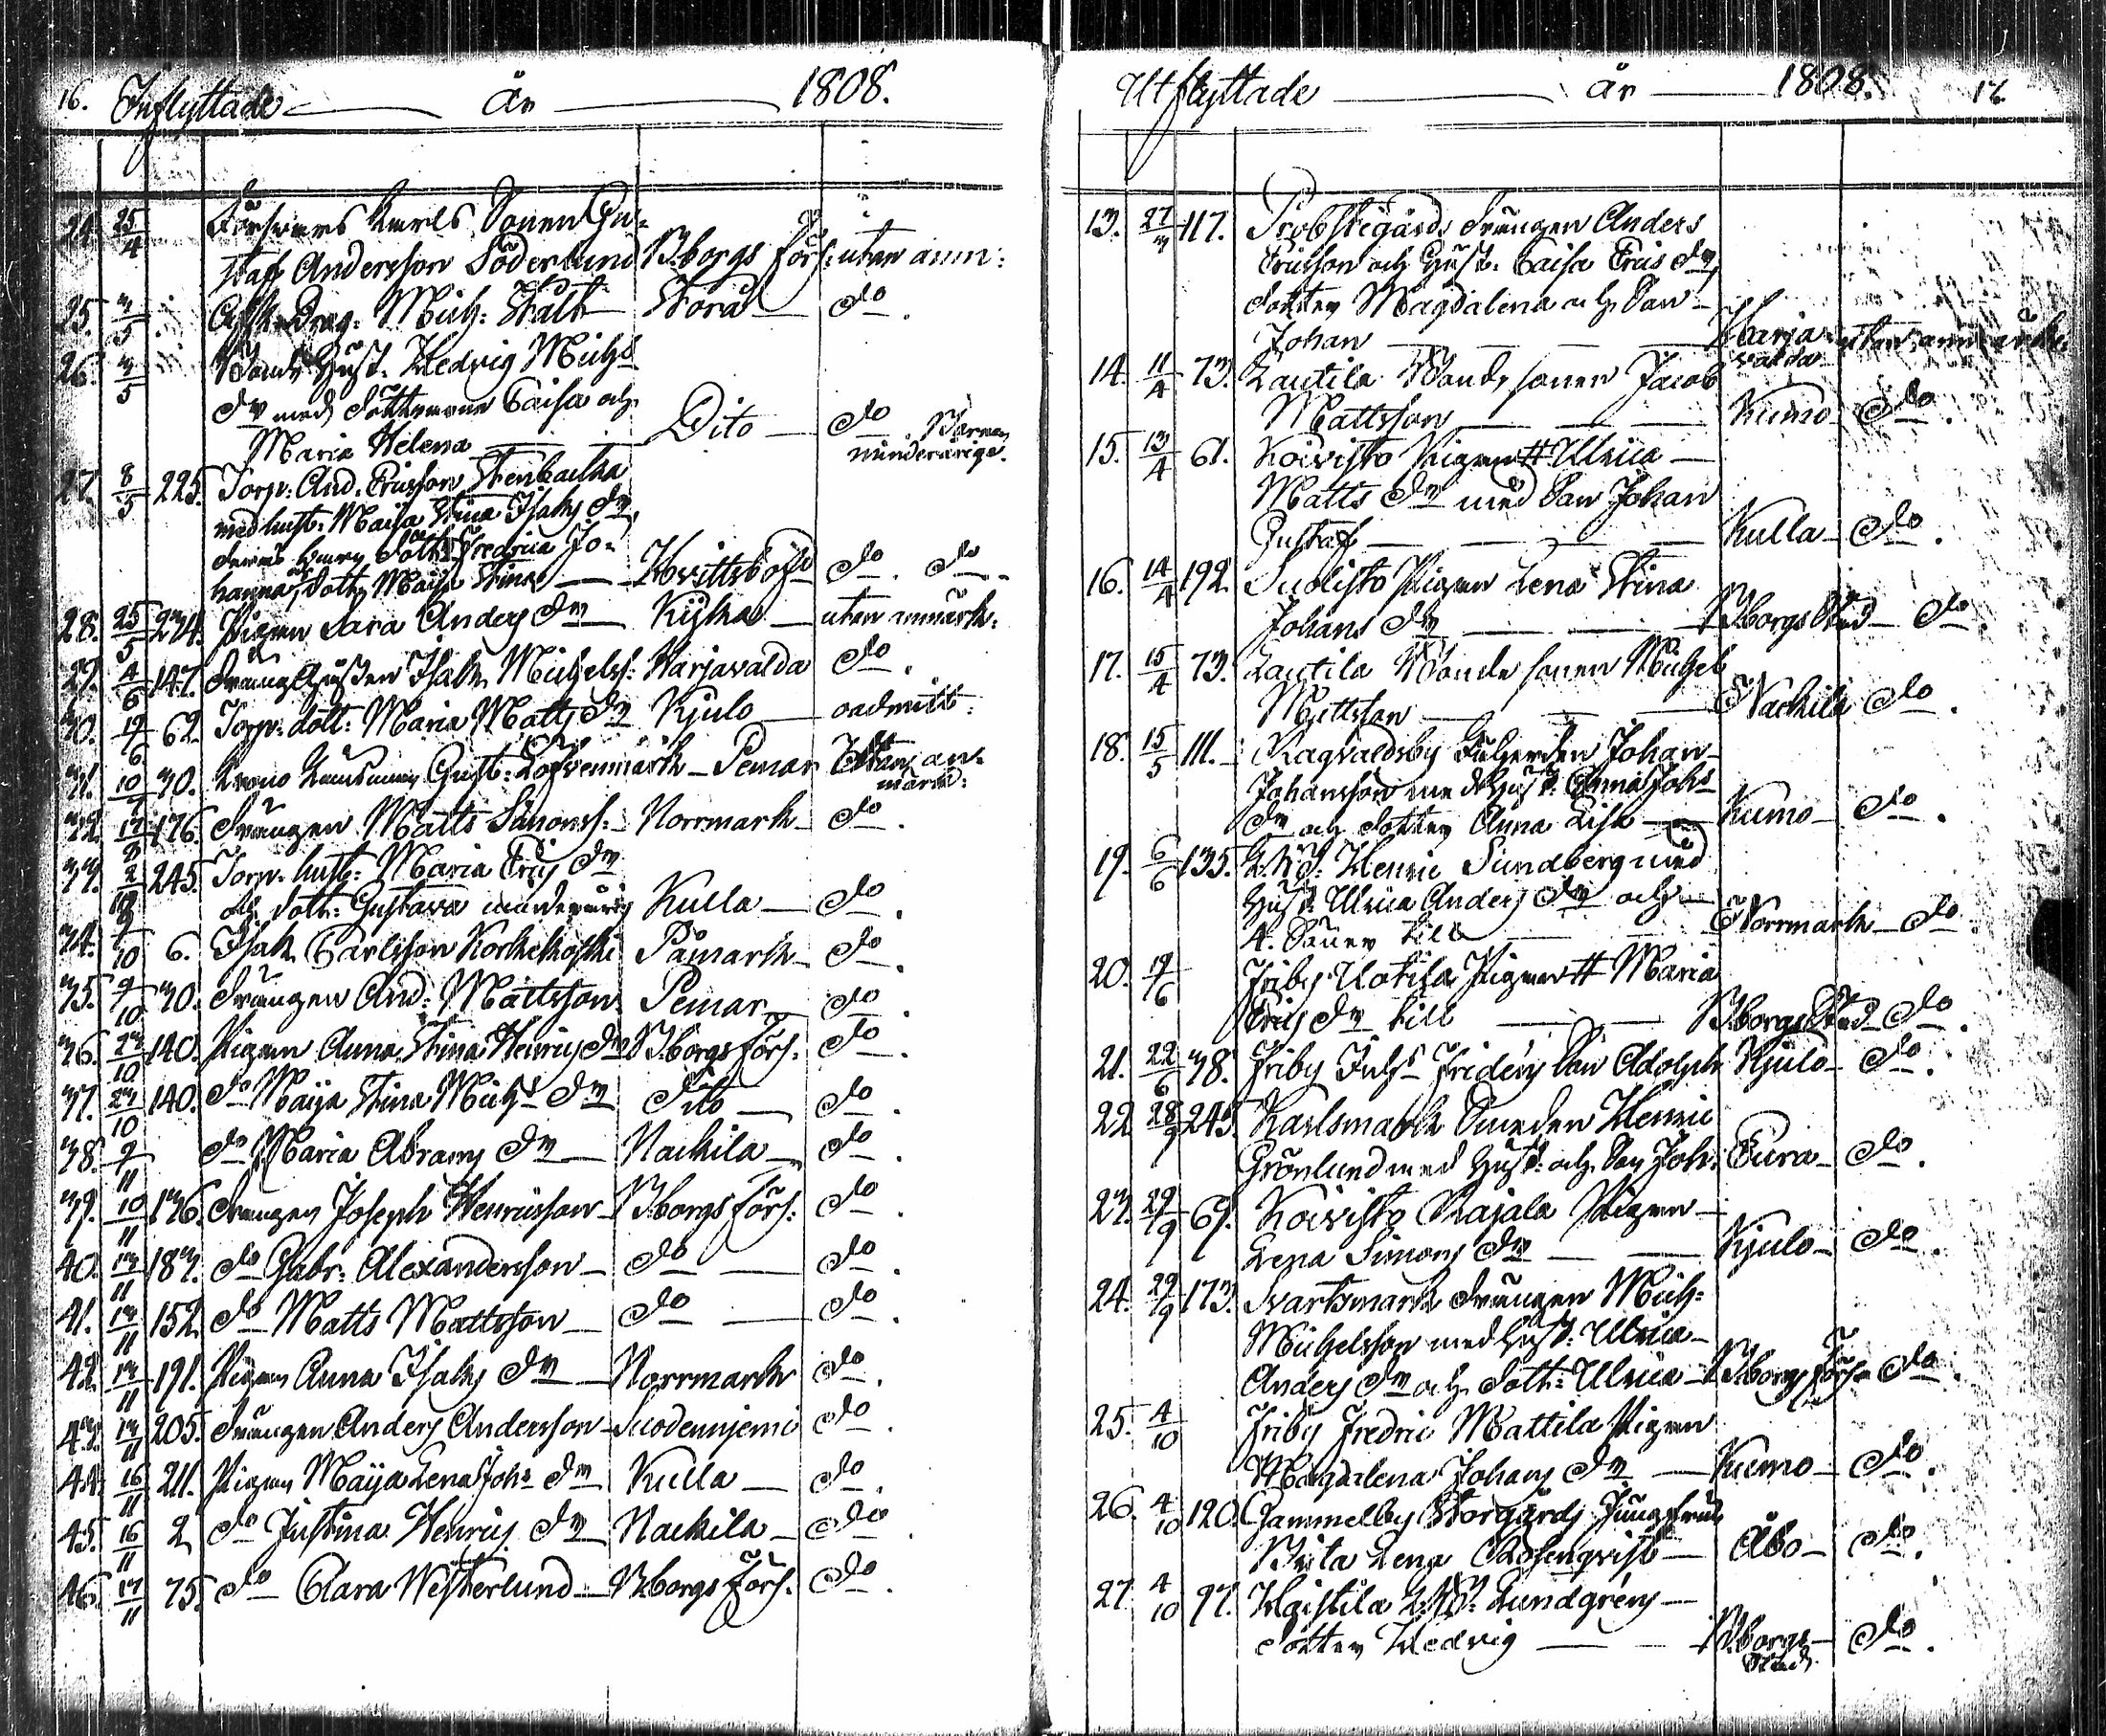 16. Inflyttade — år — 1808.
24. 25/4 Försvars Karls Sonen Gu-
staf Andersson Söderlund B:borgs förs: utan anm:
25. 3/5 Afsk. Drag: Mich: Stålt Storå d:o.
26. 3/5 Bond. Hust. Hedvig Michs
D:r med döttrarne Caisa och
Maria Helena — Dito — d:o Barnen
minderårige.
27. 8/5 225. Torp: And. Ericsson Stenbacka
med hust: Maija Stina Isaks D:r,
deras doth: Fredrica Jo-
hanna, doth: Maija Stina — Hvittisbofjd d:o. d:o.
28. 25/5 234. Pigan Sara Anders D:r — Kijka — utan anmärk:
29. 4/6 147. Dräng Gossen Isak Michelss: Harjavalda d:o.
30. 19/6 62. Torp: dott: Maria Matts D:r Kjulo — oadmitt:
31. 10/7 30. Krono Länsman Gust: Löfvenmark — Pemar Utan an-
märk:
32. 17/8 176. Drängen Matts Simonss: Norrmark — d:o.
33. 2/10 245. Torp: hust: Maria Erics D:r
och doth: Gustava minderårig Kulla — d:o.
34. 9/10 6. Isak Carlsson Korkeikoski Påmark — d:o.
35. 9/10 30. Drängen And: Mattsson Pemar — d:o.
36. 23/10 140. Pigan Anna Stina Henrics D:r B:borgs förs: d:o.
37. 23/10 140. d:o Maija Stina Michs D:r Dito — d:o.
38. 9/11 d:o Maria Abrams D:r — Nackila — d:o.
39. 10/11 136. Drängen Joseph Henricsson — B:borgs förs: d:o.
40. 13/11 183. d:o Gabr: Alexandersson — d:o — d:o.
41. 13/11 152. d:o Matts Mattsson — d:o — d:o.
42. 13/11 191. Pigan Anna Isaks D:r — Norrmark d:o.
43. 13/11 205. Drängen Anders Andersson — Suodenniemi d:o.
44. 16/11 211. Pigan Maija Lena Johs D:r Kulla — d:o.
45. 16/11 2. d:o Justina Henrics D:r Nackila — d:o.
46. 17/11 75. d:o Clara Westerlund — B:borgs förs: d:o.
Utflyttade — år — 1808. 17.
13. 27/3 117. Probstegårds Drängen Anders
Ericsson och Hust: Caisa Erics D:r,
dotter Magdalena och Son —
Johan — Harja- utan anmärk:
valda
14. 11/4 73. Lautila Bonde sonen Jacob
Mattsson — Kumo d:o.
15. 13/4 61. Koivisto Pigan # Ulrica —
Matts D:r med Son Johan
Gustaf — Kulla — d:o.
16. 14/4 192. Suolisto Pigan Lena Stina
Johans D:r — B:borgs Stad — d:o.
17. 15/4 73. Lautila Bonde sonen Michel
Mattsson — Nackila d:o.
18. 15/5 111. Ragvaldsby Johan —
Johansson med Hust: Anna Johs
D:r och dotter Anna Lisa — Kumo — d:o.
19. 6/6 135. Henric Sundberg med
Hust: Ulrica Anders D:r och —
4. Söner till — Norrmark — d:o.
20. 19/6 Friby Uotila Pigan # Maria
Erics D:r till — B:borgs Stad d:o.
21. 22/6 38. Friby Inhs Fridens Son Adolph Kjulo — d:o.
22. 28/9 245. Karlsmark Smeden Henric
Grönlund med Hust: och Son Joh: Eura — d:o.
23. 29/9 69. Koivisto Rajala Pigan —
Lena Simons D:r — Kjulo — d:o.
24. 29/9 173. Svartsmark Drängen Mich:
Michelsson med Hust: Ulrica —
Anders D:r och doth: Ulrica — B:borgs förs — d:o.
25. 4/10 Friby Fredric Mattila Pigan
Magdalena Johans D:r — Kumo — d:o.
26. 4/10 120. Gammelby Storgårds Jungfrun
Brita Lena Rosenqvist — Åbo — d:o.
27. 4/10 97. Haistila Lundgréns —
dotter Hedvig — B:borgs — d:o.
Stad